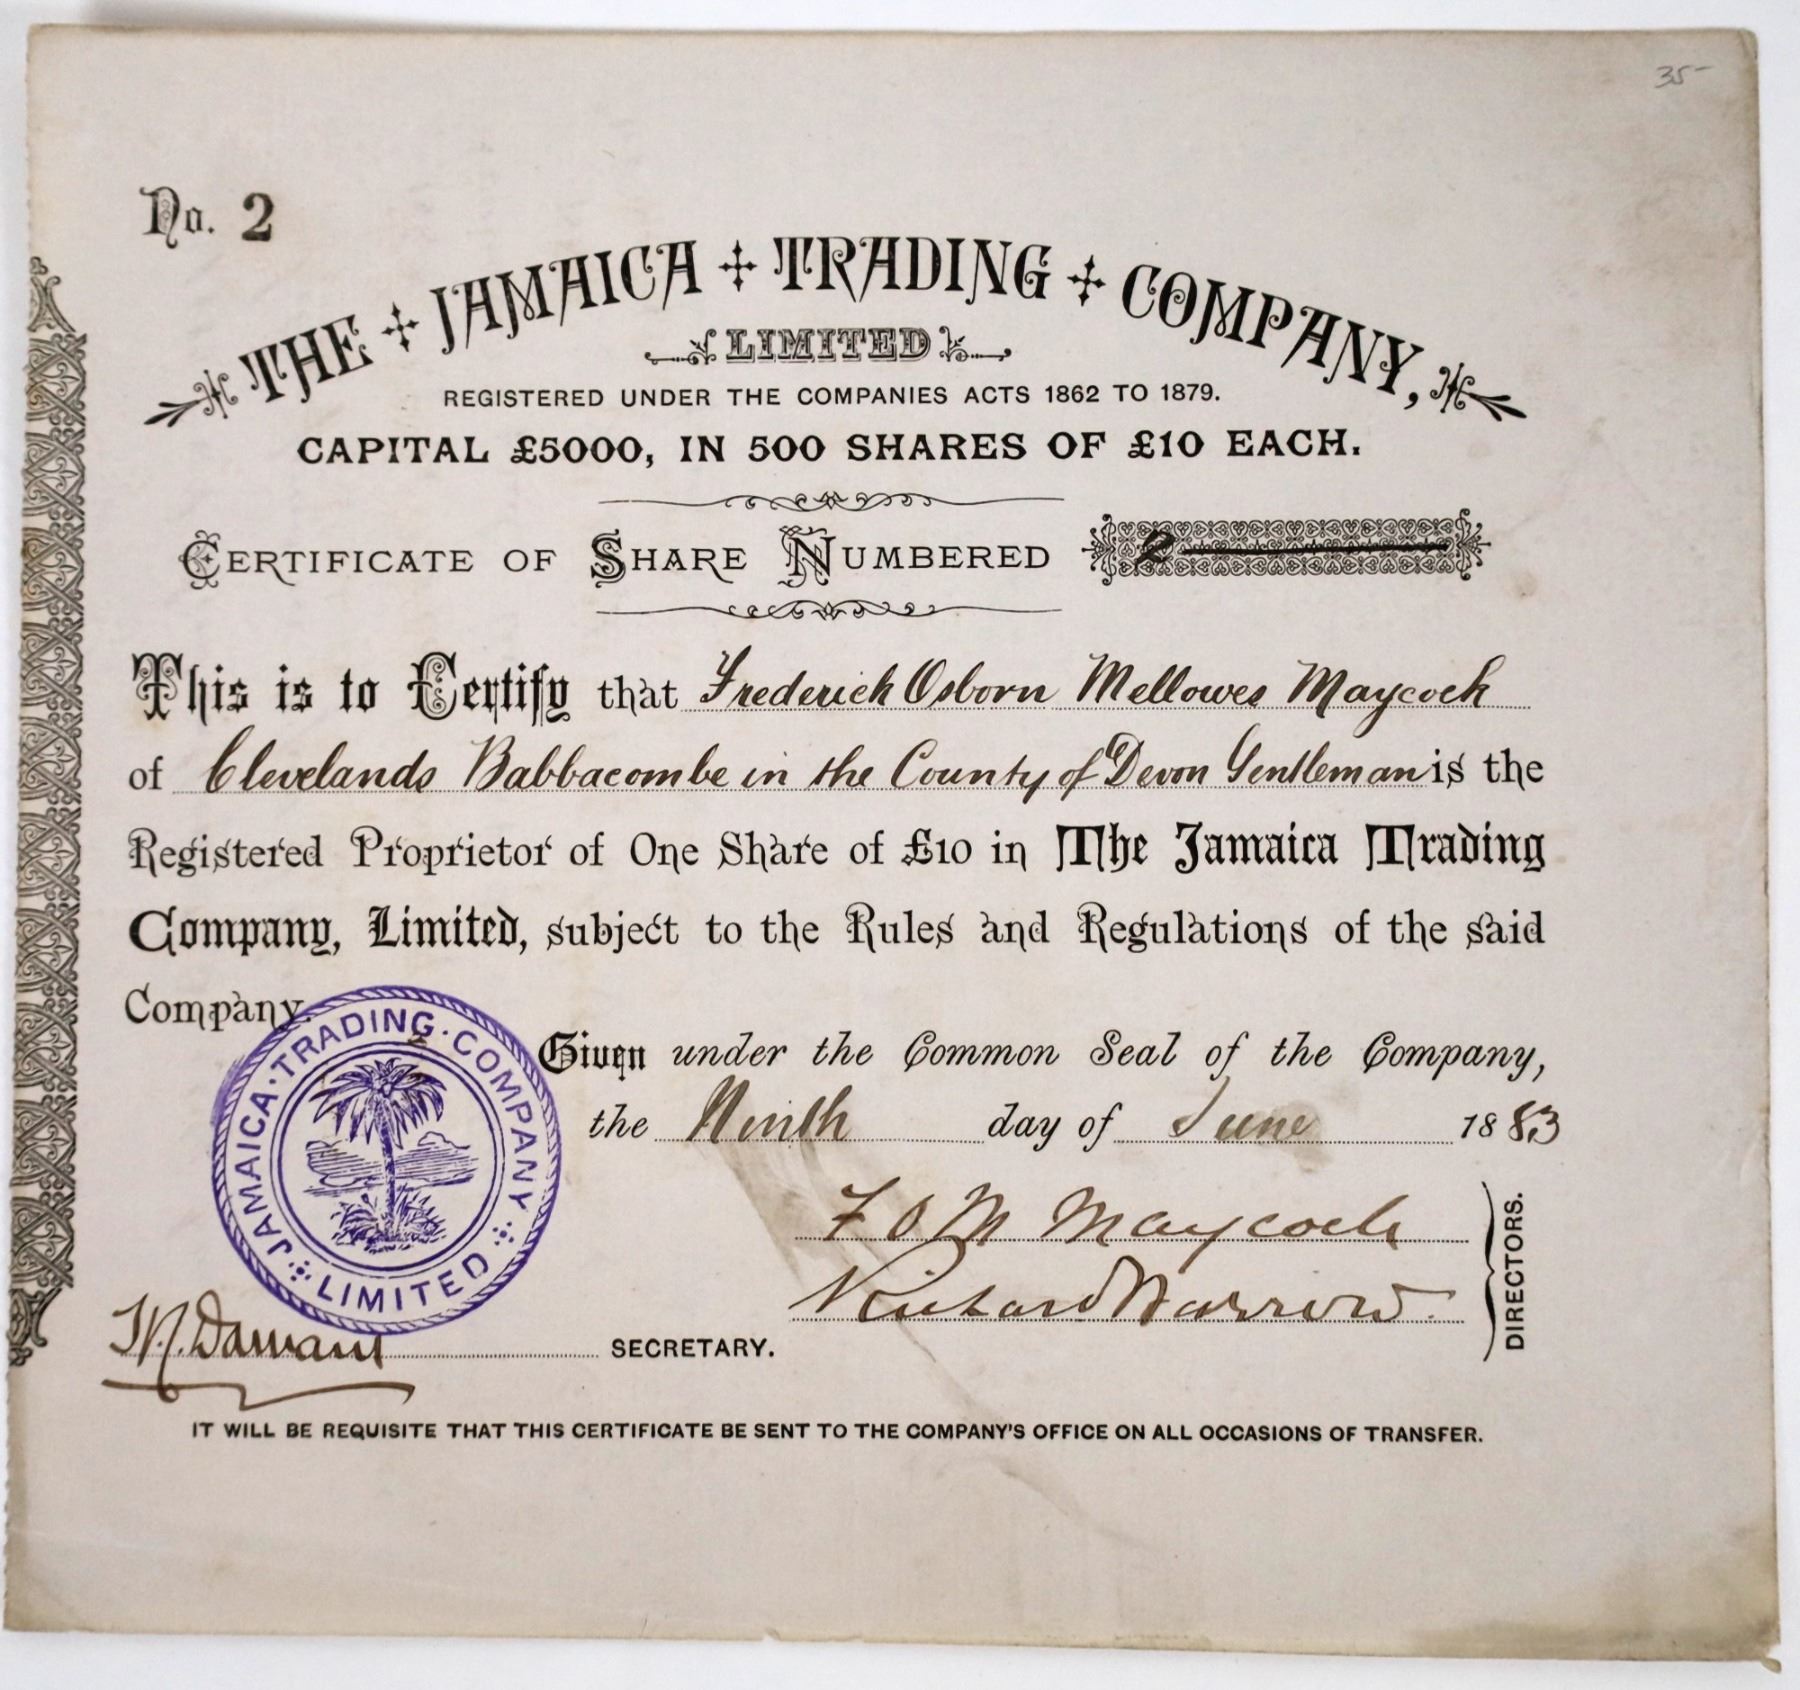 35-
No. 2
THE JAMAICA TRADING COMPANY,
LIMITED
REGISTERED UNDER THE COMPANIES ACTS 1862 TO 1879.
CAPITAL £5000, IN 500 SHARES OF £10 EACH.
CERTIFICATE OF SHARE NUMBERED 2
This is to Certify that Frederick Osborn Mellowes Maycock
of Clevelands Babbacombe in the County of Devon Gentleman is the
Registered Proprietor of One Share of £10 in The Jamaica Trading
Company, Limited, subject to the Rules and Regulations of the said
Company.
JAMAICA · TRADING · COMPANY
LIMITED
Given under the Common Seal of the Company,
the Ninth day of June 1883
F O M Maycock
Richard Narrow
DIRECTORS.
SECRETARY.
IT WILL BE REQUISITE THAT THIS CERTIFICATE BE SENT TO THE COMPANY'S OFFICE ON ALL OCCASIONS OF TRANSFER.